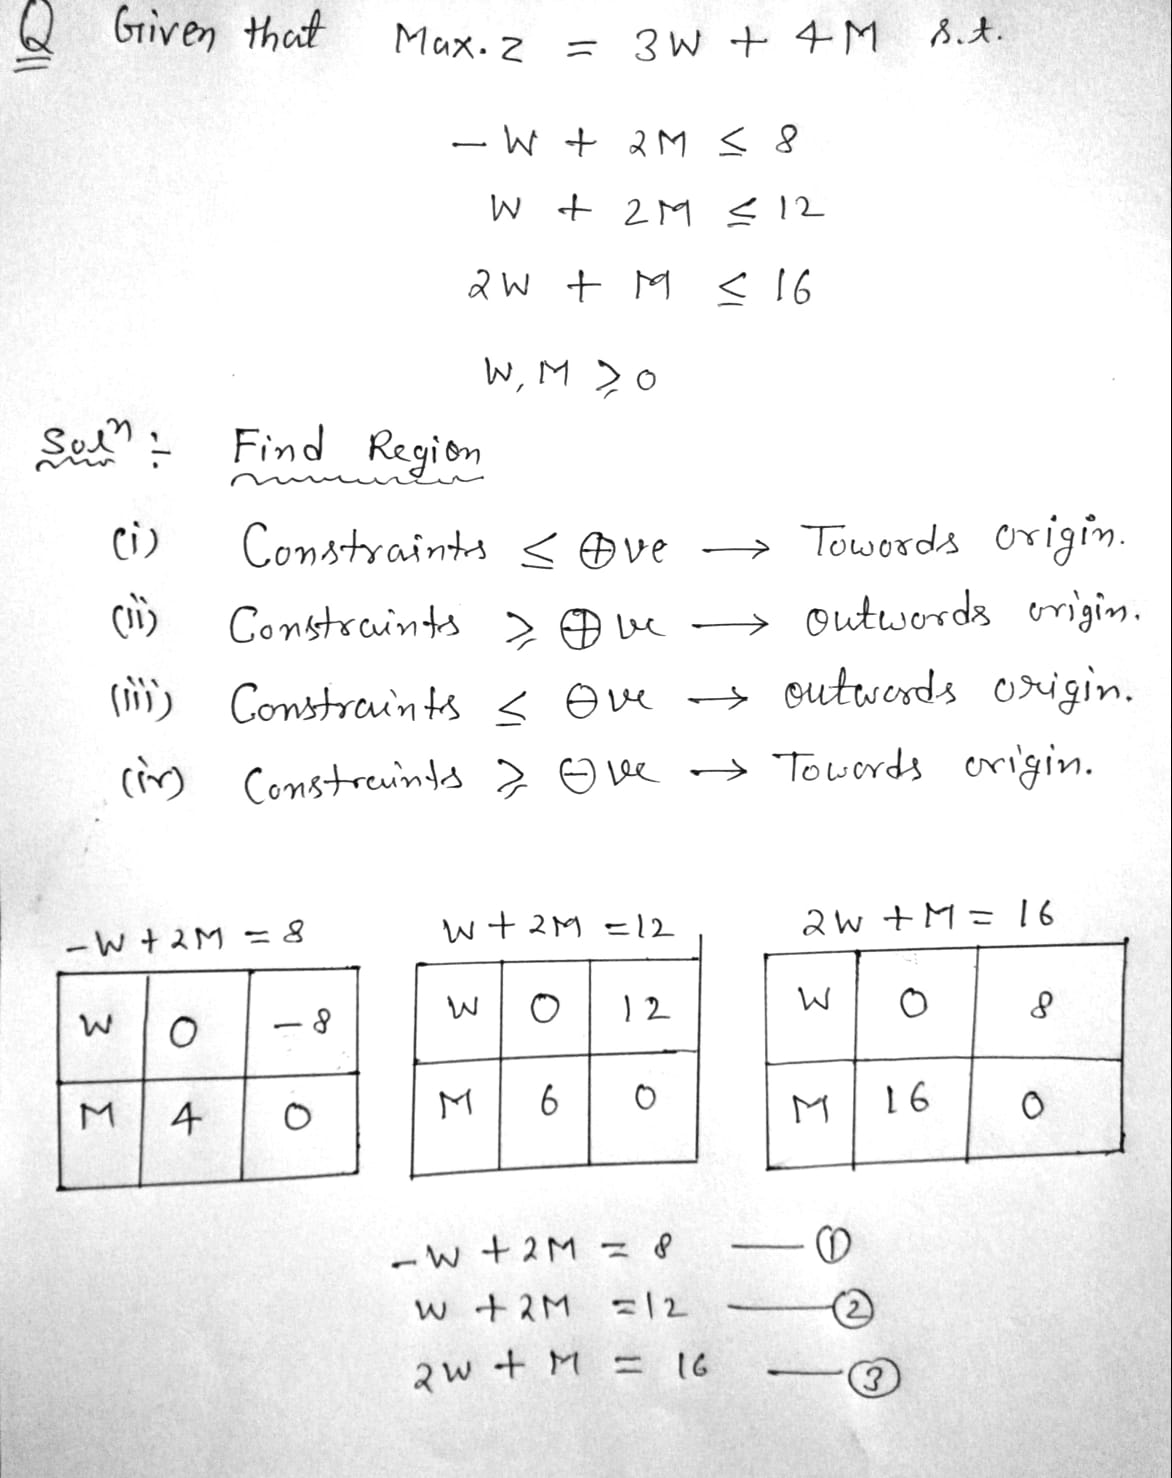 Q Given that Max. Z = 3W + 4M s.t.
- W + 2M ≤ 8
W + 2M ≤ 12
2W + M ≤ 16
W, M ≥ 0
Solⁿ :- Find Region
(i) Constraints ≤ ⊕ve → Towords origin.
(ii) Constraints ≥ ⊕ve → outwords origin.
(iii) Constraints ≤ ⊖ve → outwords origin.
(iv) Constraints ≥ ⊖ve → Towords origin.
-W + 2M = 8
W 0 -8
M 4 0
W + 2M = 12
W 0 12
M 6 0
2W + M = 16
W 0 8
M 16 0
-W + 2M = 8 — ①
W + 2M = 12 — ②
2W + M = 16 — ③